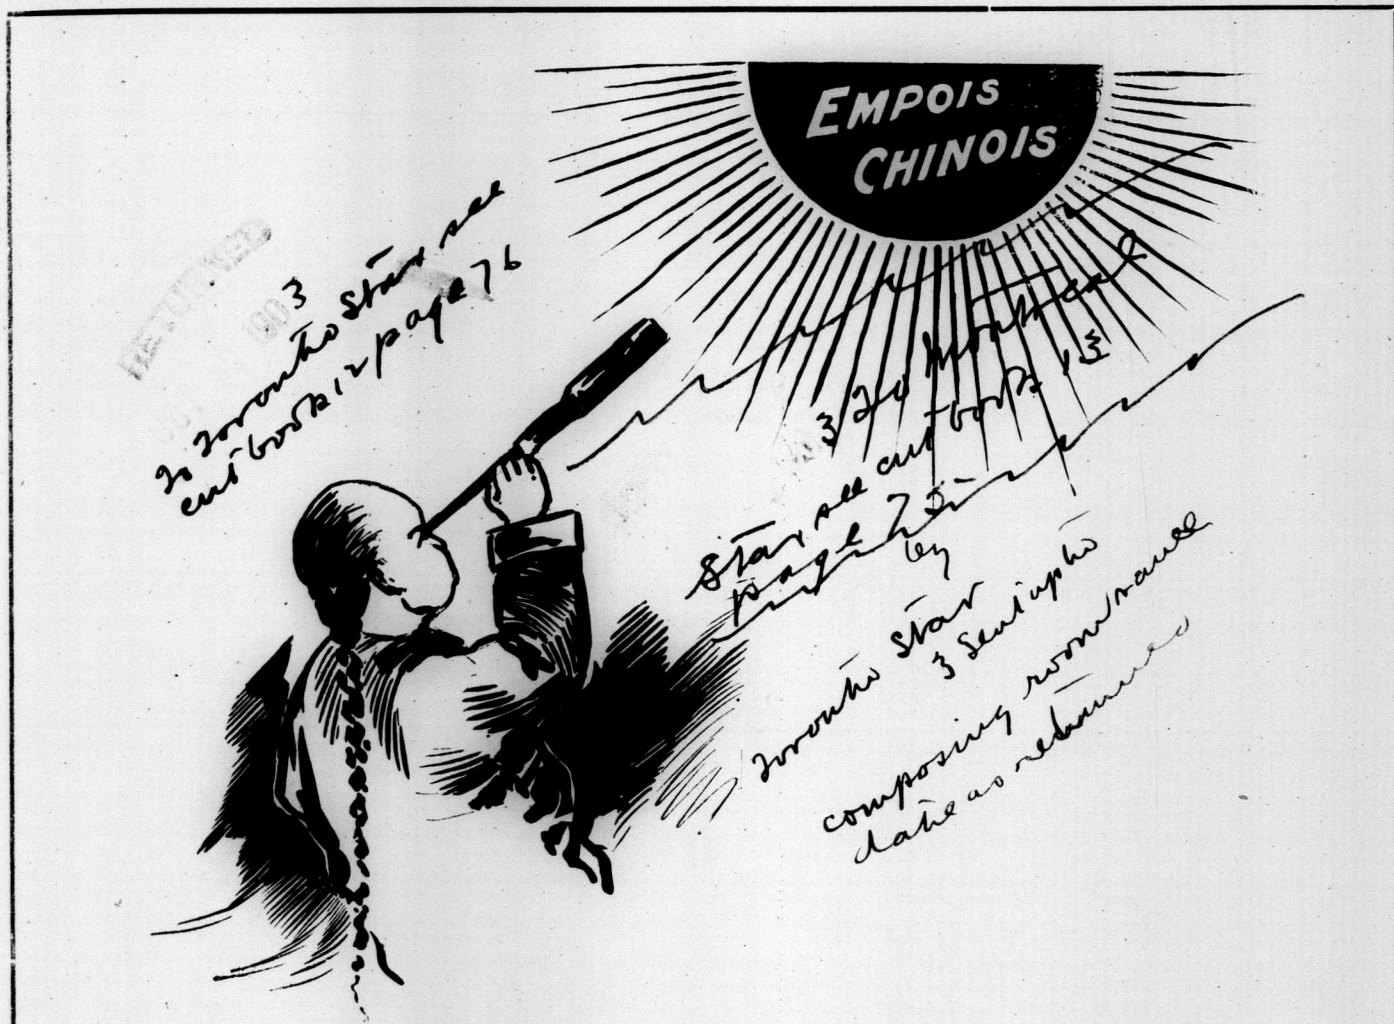 EMPOIS
CHINOIS
RETURNED
1903
3
To Toronto Star see
cut book 12 page 76
3 To Montreal
Star, see cut book 13
page 75
by
Toronto Star
3 Sent up to
composing room same
date as returned